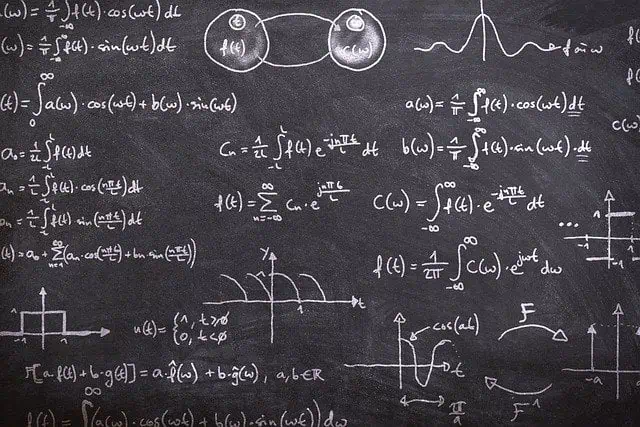 (ω) = 1/π ∫_{-∞}^{∞} f(t)·cos(ωt) dt
(ω) = 1/π ∫_{-∞}^{∞} f(t)·sin(ωt) dt
t f(t) t C(ω)
f an ω
(t) = ∫_0^∞ a(ω)·cos(ωt) + b(ω)·sin(ωt)
a(ω) = 1/π ∫_{-∞}^{∞} f(t)·cos(ωt) dt
b(ω) = 1/π ∫_{-∞}^{∞} f(t)·sin(ωt)·dt
C(ω)
a₀ = 1/2L ∫_{-L}^{L} f(t) dt
Cn = 1/2L ∫_{-L}^{L} f(t) e^{-jnπt/L} dt
an = 1/L ∫_{-L}^{L} f(t)·cos(nπt/L) dt
f(t) = ∑_{n=-∞}^{∞} Cn·e^{jnπt/L}
C(ω) = ∫_{-∞}^{∞} f(t)·e^{-jnπt/L} dt
bn = 1/L ∫_{-L}^{L} f(t)·sin(nπt/L) dt
(t) = a₀ + ∑_{n=1}^{∞} (an·cos(nπt/L) + bn·sin(nπt/L))
... 1 -1
f(t) = 1/2π ∫_{-∞}^{∞} C(ω)·e^{jωt} dω
y 1 1 t
-1 1
u(t) = {1, t≥0
0, t<0
cos(at) t π/a
F
F⁻¹
-a
F[a·f(t) + b·g(t)] = a·f̂(ω) + b·ĝ(ω), a,b∈ℝ
f(t) = ∫^∞ (a(ω)·cos(ωt) + b(ω)·sin(ωt)) dω